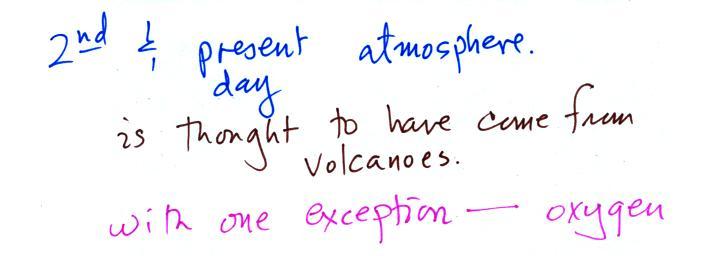 2nd & present atmosphere.
day
is thought to have come from
volcanoes.
with one exception — oxygen